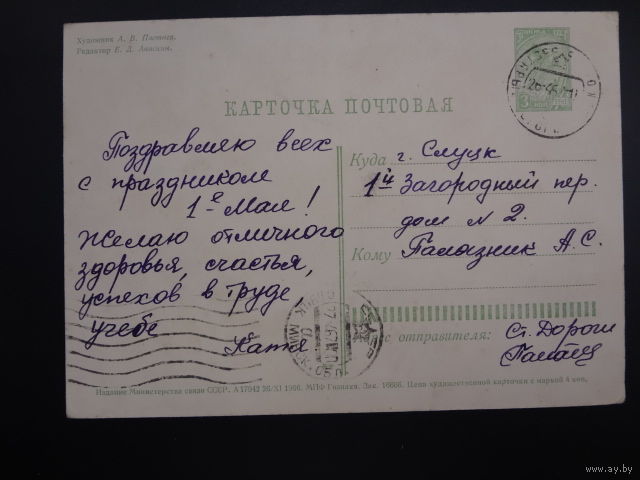 Художник А. В. Плетнев.
Редактор Е. Д. Анискин.
КАРТОЧКА ПОЧТОВАЯ
Поздравляю всех
с праздником
1-е Мая!
Желаю отличного
здоровья, счастья,
успехов в труде,
учебе
Катя
Куда г. Слуцк
1й Загородный пер.
дом N 2.
Кому Палазник А.С.
отправителя: Ст. Дороги
Издание Министерства связи СССР. А 17942 26/XI 1966. МПФ Гознака. Зак. 16666. Цена художественной карточки с маркой 4 коп.
www.ay.by